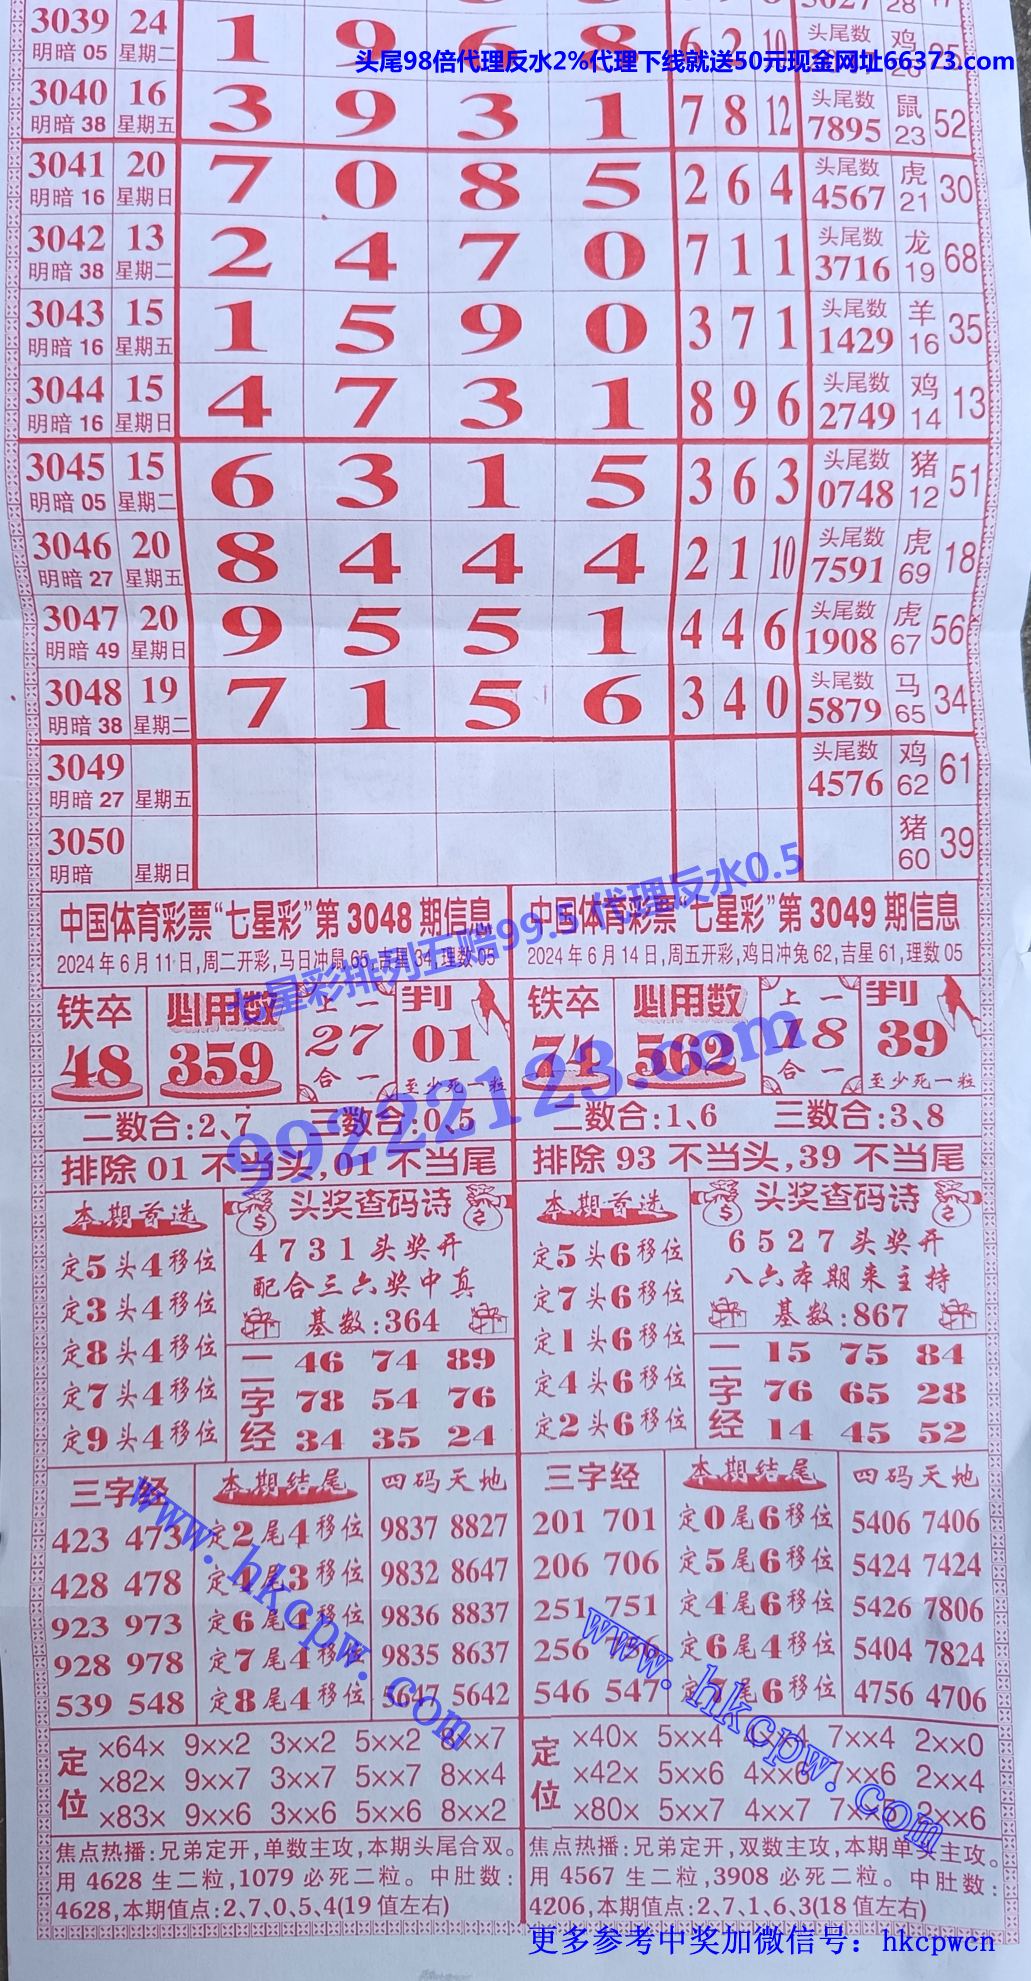 3039 24 1 9 6 8 6 2 10 头尾数 鸡
明暗 05 星期二
头尾98倍代理反水2%代理下线就送50元现金网址66373.com
3040 16 3 9 3 1 7 8 12 头尾数 鼠 52
明暗 38 星期五 7895 23
3041 20 7 0 8 5 2 6 4 头尾数 虎 30
明暗 16 星期日 4567 21
3042 13 2 4 7 0 7 1 1 头尾数 龙 68
明暗 38 星期二 3716 19
3043 15 1 5 9 0 3 7 1 头尾数 羊 35
明暗 16 星期五 1429 16
3044 15 4 7 3 1 8 9 6 头尾数 鸡 13
明暗 16 星期日 2749 14
3045 15 6 3 1 5 3 6 3 头尾数 猪 51
明暗 05 星期二 0748 12
3046 20 8 4 4 4 2 1 10 头尾数 虎 18
明暗 27 星期五 7591 69
3047 20 9 5 5 1 4 4 6 头尾数 虎 56
明暗 49 星期日 1908 67
3048 19 7 1 5 6 3 4 0 头尾数 马 34
明暗 38 星期二 5879 65
3049 头尾数 鸡 61
明暗 27 星期五 4576 62
3050 猪 39
明暗 星期日 60
七星彩排列五赔99.5 代理反水0.5
99222123.com
中国体育彩票“七星彩”第 3048 期信息
2024 年 6 月 11 日,周二开彩,马日冲鼠 65,吉星 34,理数 05
铁卒 必用数 上一 判
48 359 27 01
合一 至少死一粒
二数合:2、7 三数合:0、5
排除 01 不当头,01 不当尾
本期首选 头奖查码诗
定5头4移位 4 7 3 1 头奖开
定3头4移位 配合三六奖中真
定8头4移位 基数:364
定7头4移位
定9头4移位
二字经
46 74 89
78 54 76
34 35 24
三字经 本期结尾 四码天地
423 473 定2尾4移位 9837 8827
428 478 定4尾3移位 9832 8647
923 973 定6尾4移位 9836 8837
928 978 定7尾4移位 9835 8637
539 548 定8尾4移位 5647 5642
定位
×64× 9××2 3××2 5××2 8××7
×82× 9××7 3××7 5××7 8××4
×83× 9××6 3××6 5××6 8××2
焦点热播:兄弟定开,单数主攻,本期头尾合双。
用 4628 生二粒,1079 必死二粒。中肚数:
4628,本期值点:2、7、0、5、4(19 值左右)
中国体育彩票“七星彩”第 3049 期信息
2024 年 6 月 14 日,周五开彩,鸡日冲兔 62,吉星 61,理数 05
铁卒 必用数 上一 判
74 562 18 39
合一 至少死一粒
二数合:1、6 三数合:3、8
排除 93 不当头,39 不当尾
本期首选 头奖查码诗
定5头6移位 6 5 2 7 头奖开
定7头6移位 八六本期来主持
定1头6移位 基数:867
定4头6移位
定2头6移位
二字经
15 75 84
76 65 28
14 45 52
三字经 本期结尾 四码天地
201 701 定0尾6移位 5406 7406
206 706 定5尾6移位 5424 7424
251 751 定4尾6移位 5426 7806
256 756 定6尾4移位 5404 7824
546 547 定7尾6移位 4756 4706
定位
×40× 5××4 4××4 7××4 2××0
×42× 5××6 4××6 7××6 2××4
×80× 5××7 4××7 7××5 2××6
焦点热播:兄弟定开,双数主攻,本期单头主攻。
用 4567 生二粒,3908 必死二粒。中肚数:
4206,本期值点:2、7、1、6、3(18 值左右)
www.hkcpw.com
www.hkcpw.com
更多参考中奖加微信号：hkcpwcn